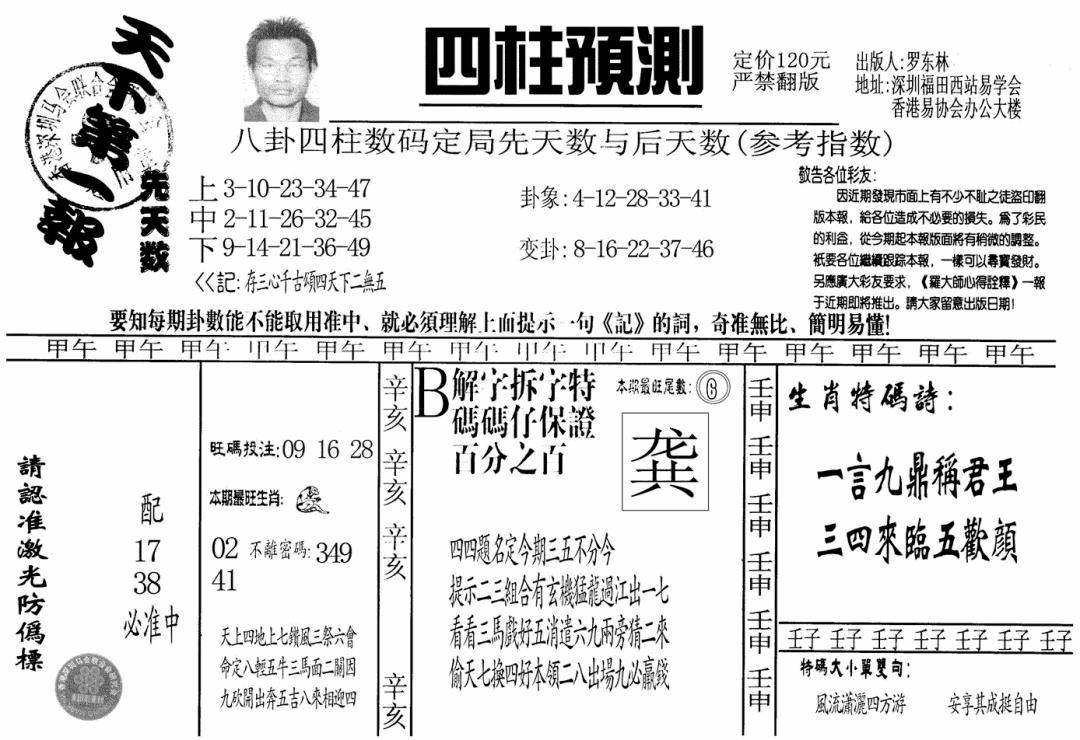 天下第一報
四柱預測
定价120元
严禁翻版
出版人:罗东林
地址:深圳福田西站易学会
香港易协会办公大楼
八卦四柱数码定局先天数与后天数(参考指数)
先天数
上 3-10-23-34-47
中 2-11-26-32-45
下 9-14-21-36-49
<<記:存三心千古頌四天下二無五
卦象:4-12-28-33-41
变卦:8-16-22-37-46
敬告各位彩友:
因近期發現市面上有不少不耻之徒盜印翻
版本報，給各位造成不必要的損失。為了彩民
的利益，從今期起本報版面將有稍微的調整。
祇要各位繼續跟踪本報，一樣可以尋寶發財。
另應廣大彩友要求，《羅大師心得詮釋》一報
于近期即將推出。請大家留意出版日期!
要知每期卦數能不能取用准中、就必須理解上面提示一句《記》的詞，奇准無比、簡明易懂!
甲午 甲午 甲午 甲午 甲午 甲午 甲午 甲午 甲午 甲午 甲午 甲午 甲午 甲午 甲午
請認准激光防僞標
配
17
38
必准中
旺碼投注:09 16 28
本期最旺生肖:
02 不離密碼:349
41
天上四地上七鑽風三祭六會
命定八輕五牛三馬面二關因
九砍開出奔五吉八來相迎四
辛亥 辛亥 辛亥 辛亥
B解字拆字特
碼碼仔保證
百分之百
本期最旺尾數:6
龚
四四題名定今期三五不分今
提示二三組合有玄機猛龍過江出一七
看看三馬戲好五消遣六九兩旁猜二來
偷天七換四好本領二八出場九必贏錢
壬申 壬申 壬申 壬申 壬申 壬申
生肖特碼詩:
一言九鼎稱君王
三四來臨五歡顔
壬子 壬子 壬子 壬子 壬子 壬子 壬子
特碼大小單雙句:
風流瀟灑四方游 安享其成挺自由